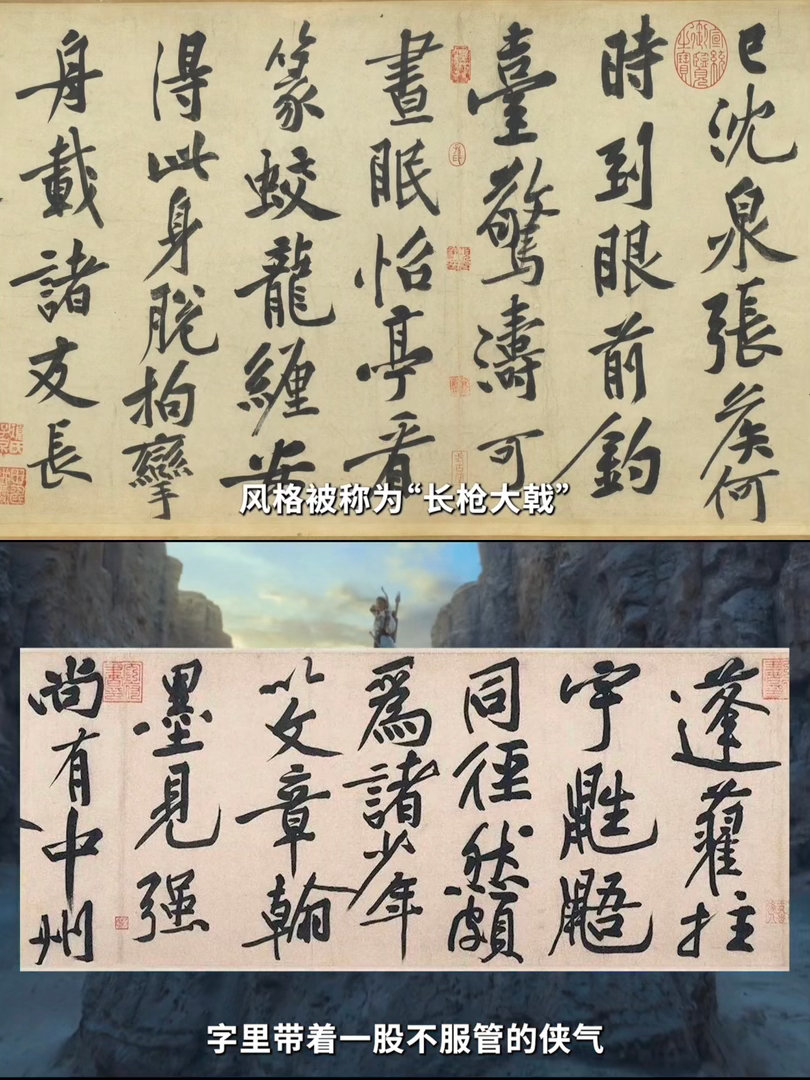 已沈泉張侯何
時到眼前釣
臺驚濤可
晝眠怡亭看
篆蛟龍纏安
得此身脫拘攣
舟載諸友長
宣統御覽之寶
风格被称为“长枪大戟”
蓬藋拄
宇鼪鼯
同徑然頗
爲諸少年
以文章翰
墨見强
尚有中州
字里带着一股不服管的侠气